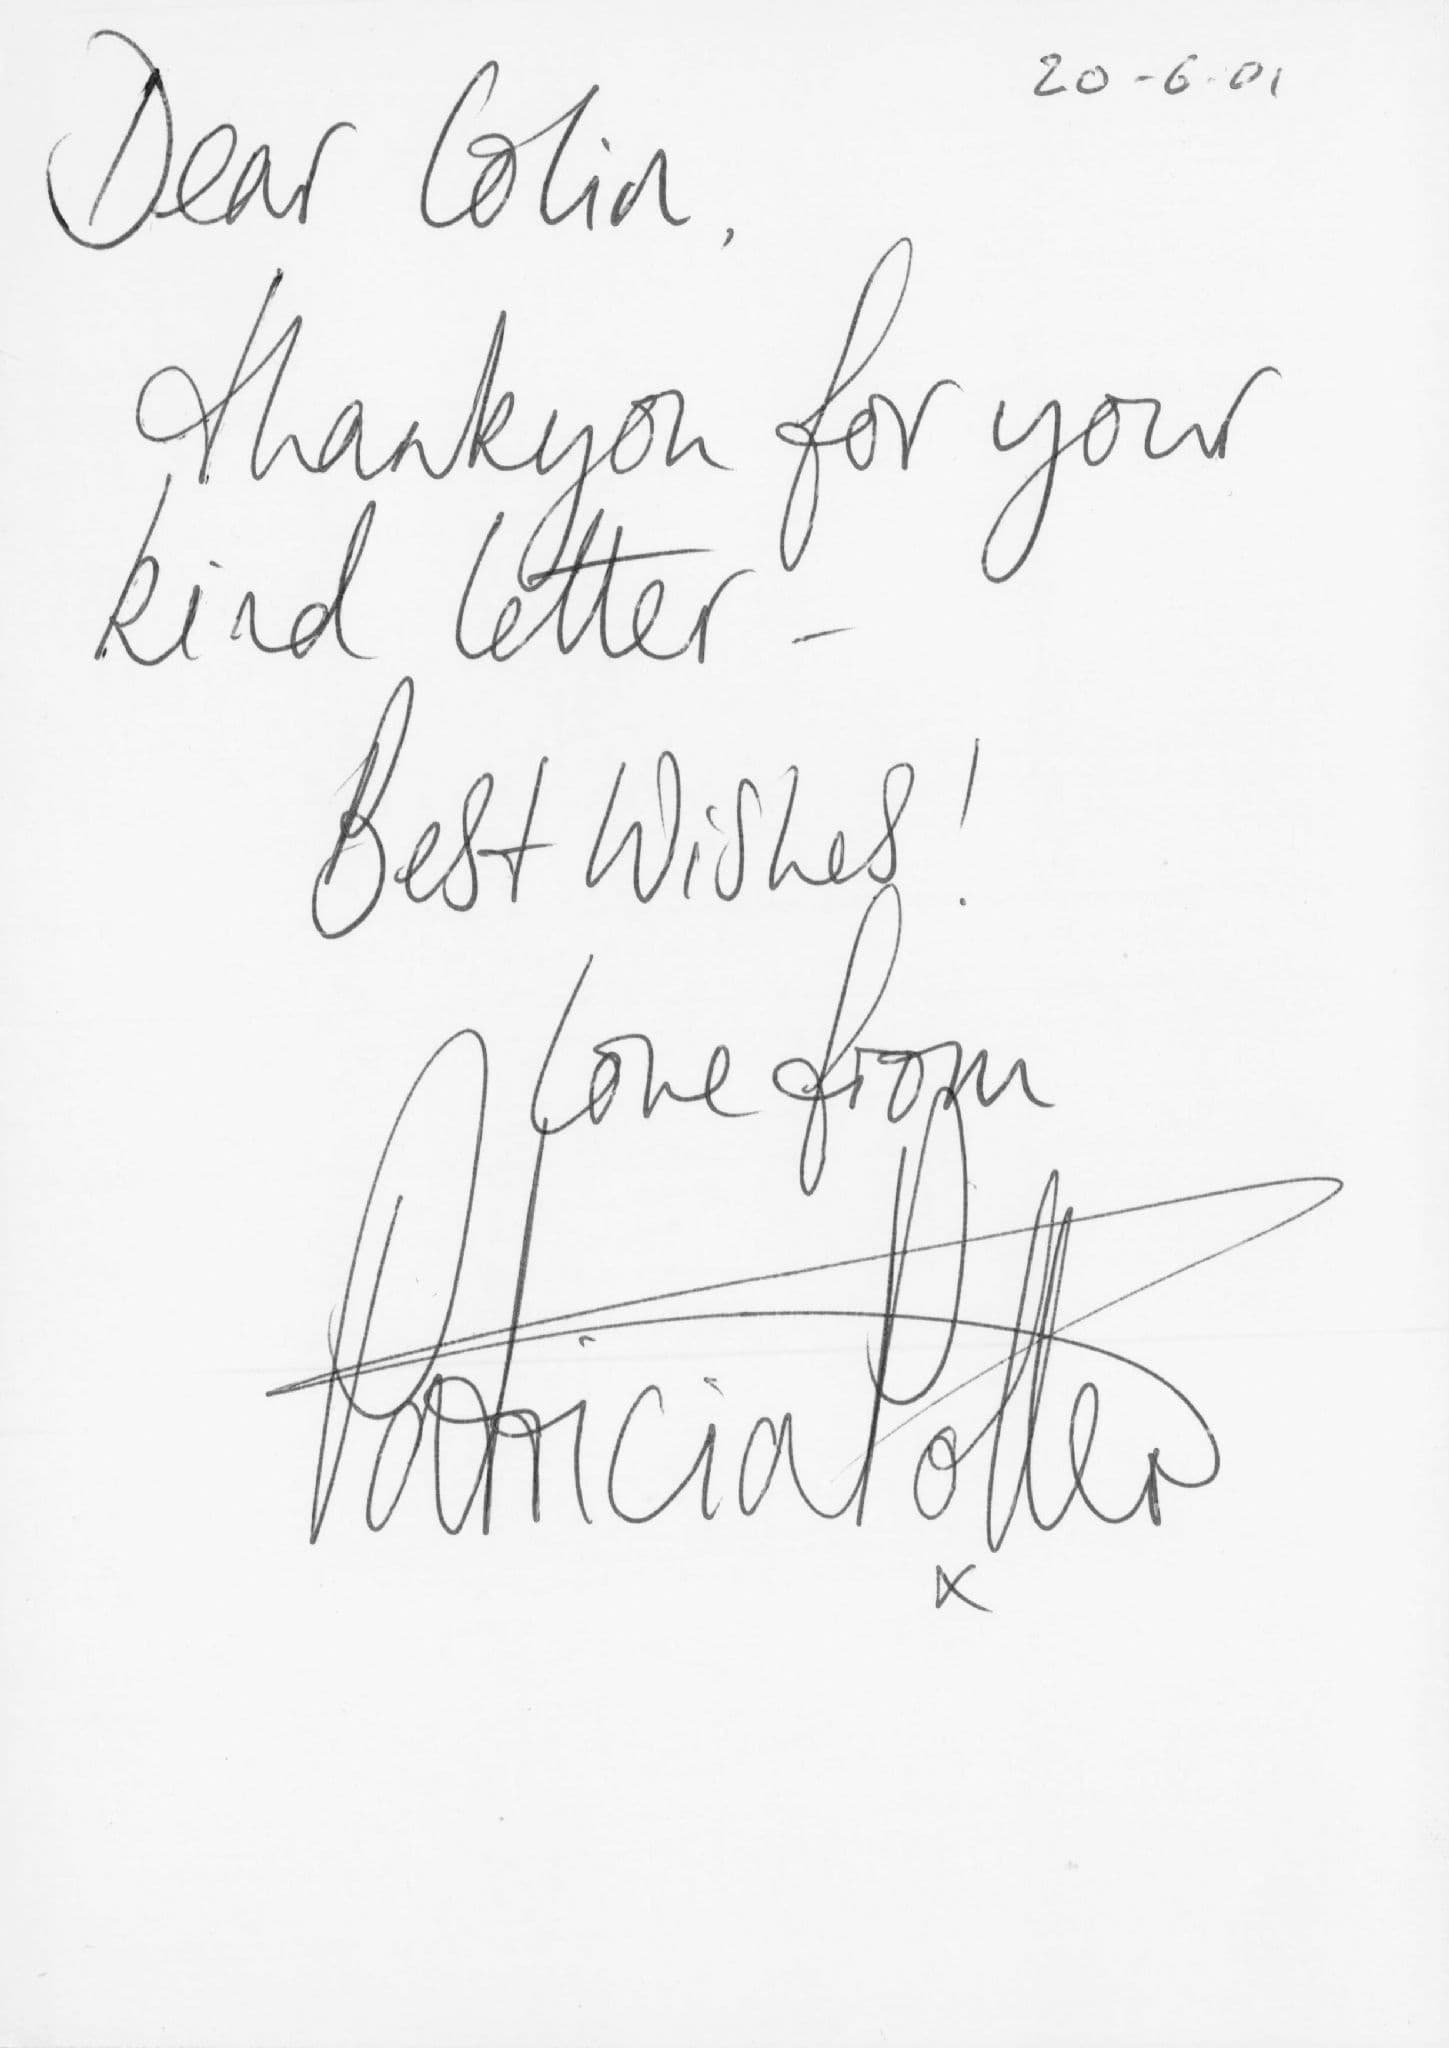 20-6-01
Dear Colin,
thankyou for your
kind letter –
Best Wishes!
love from
Patricia Potter
x